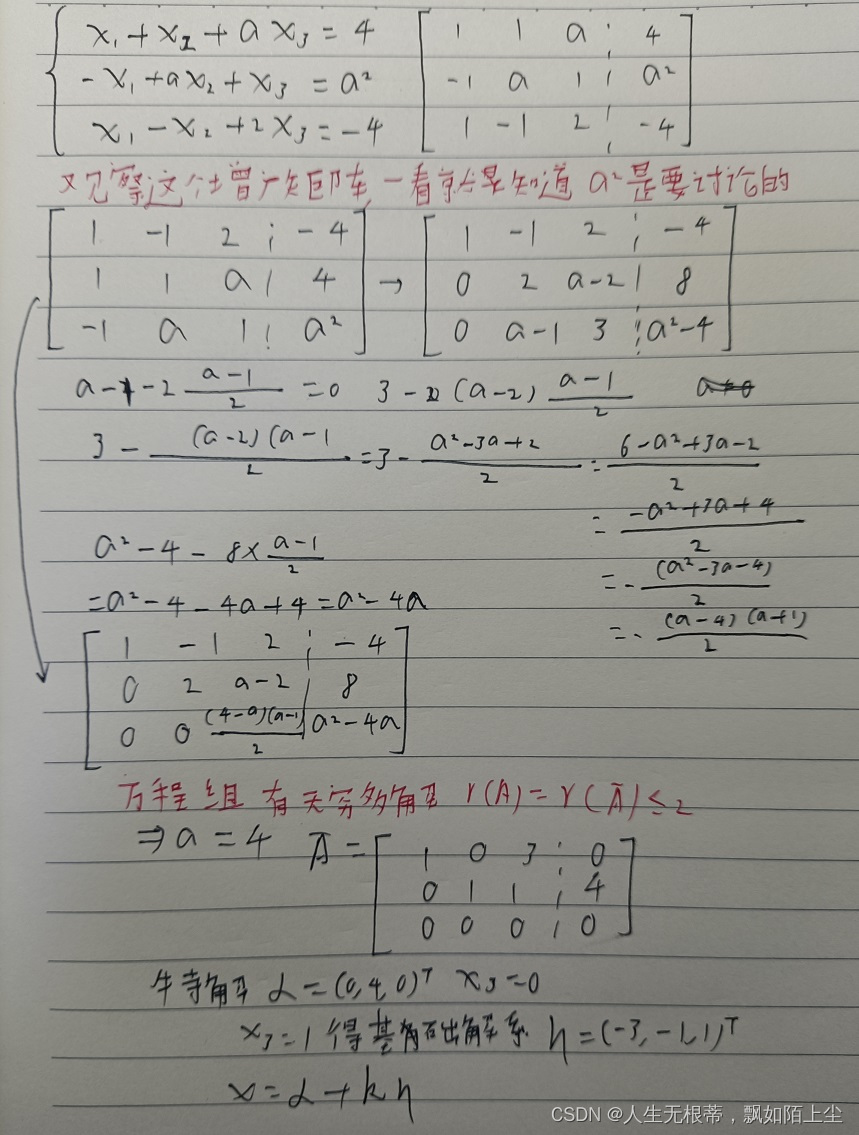 x₁ + x₂ + a x₃ = 4 [ 1 1 a ¦ 4
-x₁ + ax₂ + x₃ = a² -1 a 1 ¦ a²
x₁ - x₂ + 2x₃ = -4 1 -1 2 ¦ -4 ]
观察这个增广矩阵 一看就是知道 a²是要讨论的
[ 1 -1 2 ¦ -4 [ 1 -1 2 ¦ -4
1 1 a ¦ 4 → 0 2 a-2 ¦ 8
-1 a 1 ¦ a² ] 0 a-1 3 ¦ a²-4 ]
a-1-2 (a-1)/2 = 0 3 - (a-2) (a-1)/2
3 - (a-2)(a-1/2 = 3 - (a²-3a+2)/2 = (6-a²+3a-2)/2
= (-a²+3a+4)/2
a²-4 - 8× (a-1)/2
= -(a²-3a-4)/2
= a²-4-4a+4 = a²-4a
= -(a-4)(a+1)/2
[ 1 -1 2 ¦ -4
0 2 a-2 ¦ 8
0 0 (4-a)(a-1)/2 a²-4a ]
方程组 有无穷多解 r(A) = r(Ā) ≤ 2
⇒ a = 4 Ā = [ 1 0 3 ¦ 0
0 1 1 ¦ 4
0 0 0 ¦ 0 ]
特解 α = (0,4,0)ᵀ x₃=0
x₃=1 得基础出解系 η = (-3,-1,1)ᵀ
x = α + kη
CSDN @人生无根蒂，飘如陌上尘